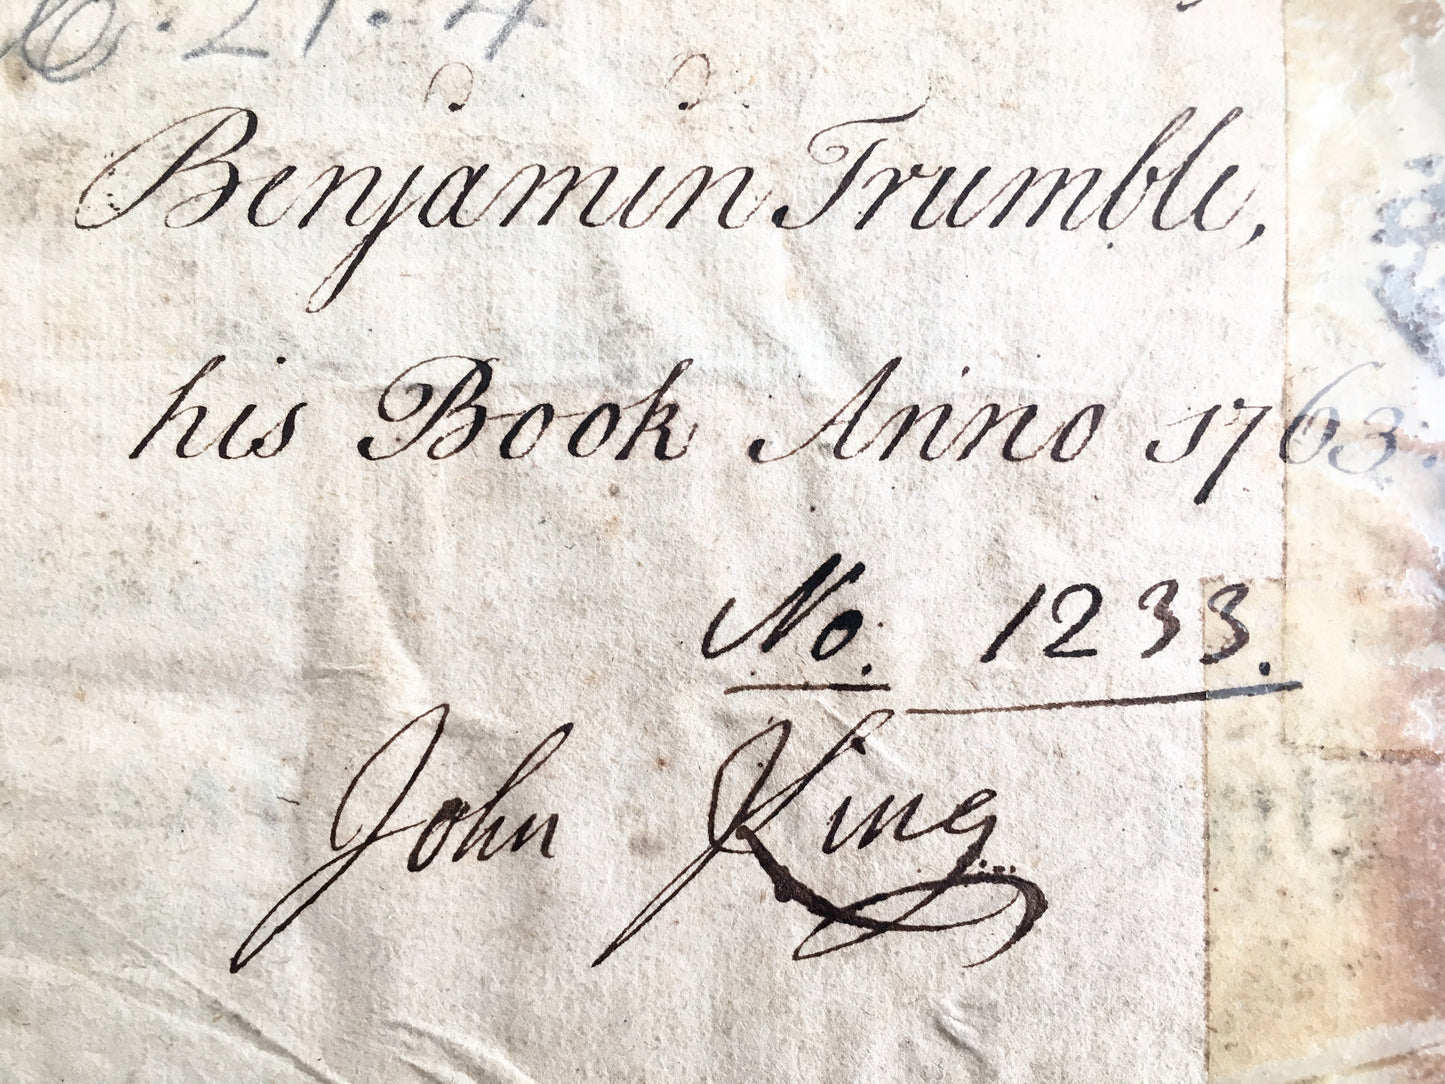 21.4
Benjamin Trumble,
his Book Anno 1763.
No. 1233.
John King